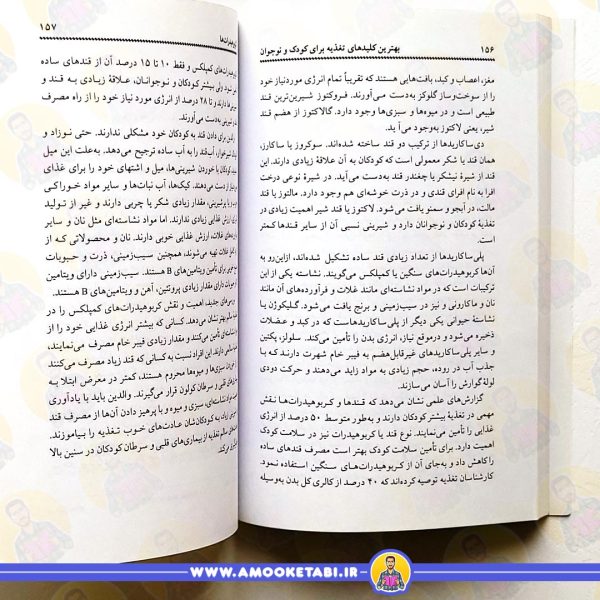 ۱۵۶
بهترین کلیدهای تغذیه برای کودک و نوجوان
مغز، اعصاب و کبد، بافت‌هایی هستند که تقریباً تمام انرژی موردنیاز خود
را از سوخت‌وساز گلوکز به‌دست می‌آورند. فروکتوز شیرین‌ترین قند
طبیعی است و در میوه‌ها و سبزی‌ها وجود دارد. گالاکتوز از هضم قند
شیر، یعنی لاکتوز به‌وجود می‌آید.
دی‌ساکاریدها از ترکیب دو قند ساخته شده‌اند. سوکروز یا ساکارز،
همان قند یا شکر معمولی است که کودکان به آن علاقهٔ زیادی دارند. این
قند از شیرهٔ نیشکر یا چغندر قند به‌دست می‌آید. در شیرهٔ نوعی درخت
افرا به نام افرای قندی و در ذرت خوشه‌ای هم وجود دارد. مالتوز یا قند
مالت، در آبجو و سمنو یافت می‌شود. لاکتوز یا قند شیر اهمیت زیادی در
تغذیهٔ کودکان و نوجوانان دارد و شیرینی نسبی آن از سایر قندها کمتر
است.
پلی‌ساکاریدها از تعداد زیادی قند ساده تشکیل شده‌اند، ازاین‌رو به
آن‌ها کربوهیدرات‌های سنگین یا کمپلکس می‌گویند. نشاسته یکی از این
ترکیبات است که در مواد نشاسته‌ای مانند غلات و فرآورده‌های آن مانند
نان و ماکارونی و نیز در سیب‌زمینی و برنج یافت می‌شود. گلیکوژن یا
نشاستهٔ حیوانی یکی دیگر از پلی‌ساکاریدهاست که در کبد و عضلات
ذخیره می‌شود و درموقع نیاز، انرژی بدن را تأمین می‌کند. سلولز، پکتین
و سایر پلی‌ساکاریدهای غیرقابل‌هضم به فیبر خام شهرت دارند کـه با
جذب آب در روده، حجم زیادی به مواد زاید می‌دهند و حرکت دودی
لولهٔ گوارش را آسان می‌سازند.
گزارش‌های علمی نشان می‌دهد که قندها و کربوهیدرات‌ها نقش
مهمی در تغذیهٔ بیشتر کودکان دارند و به‌طور متوسط ۵۰ درصد از انرژی
غذایی را تأمین می‌نمایند. نوع قند یا کربوهیدرات نیز در سلامت کودک
اهمیت دارد. برای تأمین سلامت کودک بهتر است مصرف قندهای ساده
را کاهش داد و به‌جای آن از کربوهیدرات‌های سنگین استفاده نمود.
کارشناسان تغذیه توصیه کرده‌اند که ۴۰ درصد از کالری کل بدن به‌وسیله
۱۵۷
کمپلکس و فقط ۱۰ تا ۱۵ درصد آن از قندهای ساده
شود. ولی بیشتر کودکان و نوجوانان، علاقهٔ زیادی به قند و
دارند و تا ۲۸ درصد از انرژی مورد نیاز خود را از راه مصرف
به‌دست می‌آورند.
برای دادن قند به کودکان خود مشکلی ندارند. حتی نوزاد و
شیرخوار، آب‌قند را به آب ساده ترجیح می‌دهد. به‌علت این میل
کودکان با خوردن شیرینی‌ها، میل و اشتهای خود را برای غذای
از دست می‌دهند. کیک‌ها، آب نبات‌ها و سایر مواد خوراکی
شیرینی، مقدار زیادی شکر یا چربی دارند و غیر از تولید
ارزش غذایی زیادی ندارند. اما مواد نشاسته‌ای مثل نان و سایر
غلات، ارزش غذایی خوبی دارند. نان و محصولاتی که از
غلات تهیه می‌شوند، همچنین سیب‌زمینی، ذرت و حبوبات
برای تأمین ویتامین‌های B هستند. سیب‌زمینی دارای ویتامین
دارای مقدار زیادی پروتئین، آهن و ویتامین‌های B هستند.
جدید، اهمیت و نقش کربوهیدرات‌های کمپلکس را در
بهتر نشان می‌دهد. کسانی که بیشتر انرژی غذایی خود را از
نشاسته‌ای تأمین می‌کنند و مقدار زیادی فیبر خام مصرف می‌نمایند،
دارند. این افراد نسبت به کسانی که قند زیاد مصرف می‌کنند
سبزی‌ها و میوه‌ها محروم هستند، کمتر در معرض ابتلا به
قلبی و سرطان کولون قرار می‌گیرند. والدین باید با یادآوری
نشاسته‌ای، سبزی و میوه و با پرهیز دادن آن‌ها از مصرف قند
به کودکان‌شان عادت‌های خوب تغذیه را بیاموزند.
تغذیه از بیماری‌های قلبی و سرطان کودکان در سنین بالا
WWW.AMOOKETABI.IR